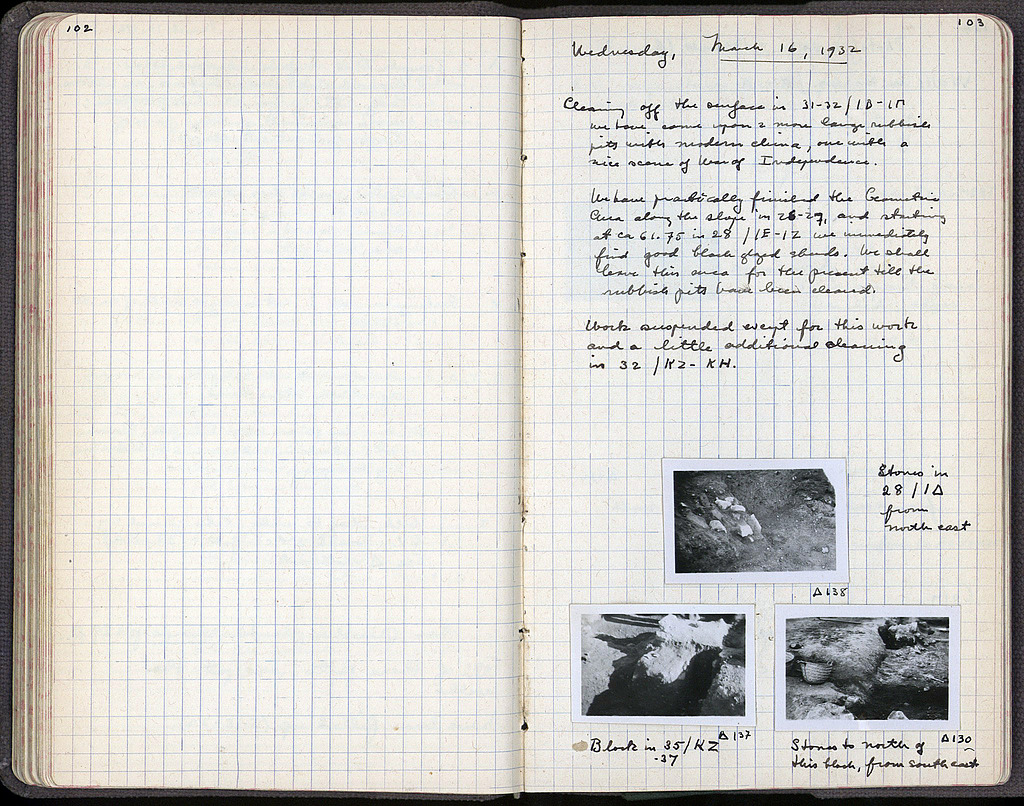 102
103
Wednesday, March 16, 1932
Cleaning off the surface in 31-32/ΙΒ-ΙΠ
we have come upon 2 more large rubbish
pits with modern china, one with a
nice scene of War of Independence.
We have practically finished the Geometric
area along the slope in 26-29, and starting
at ca 61.75 in 28 /ΙΕ-ΙΖ we immediately
find good black glazed sherds. We shall
leave this area for the present till the
rubbish pits have been cleaned.
Work suspended except for this work
and a little additional cleaning
in 32 /ΚΖ-ΚΗ.
Stones in
28/ΙΔ
from
north east
Δ138
Δ137
Block in 35/ΚΖ
-37
Δ130
Stones to north of
this block, from south east